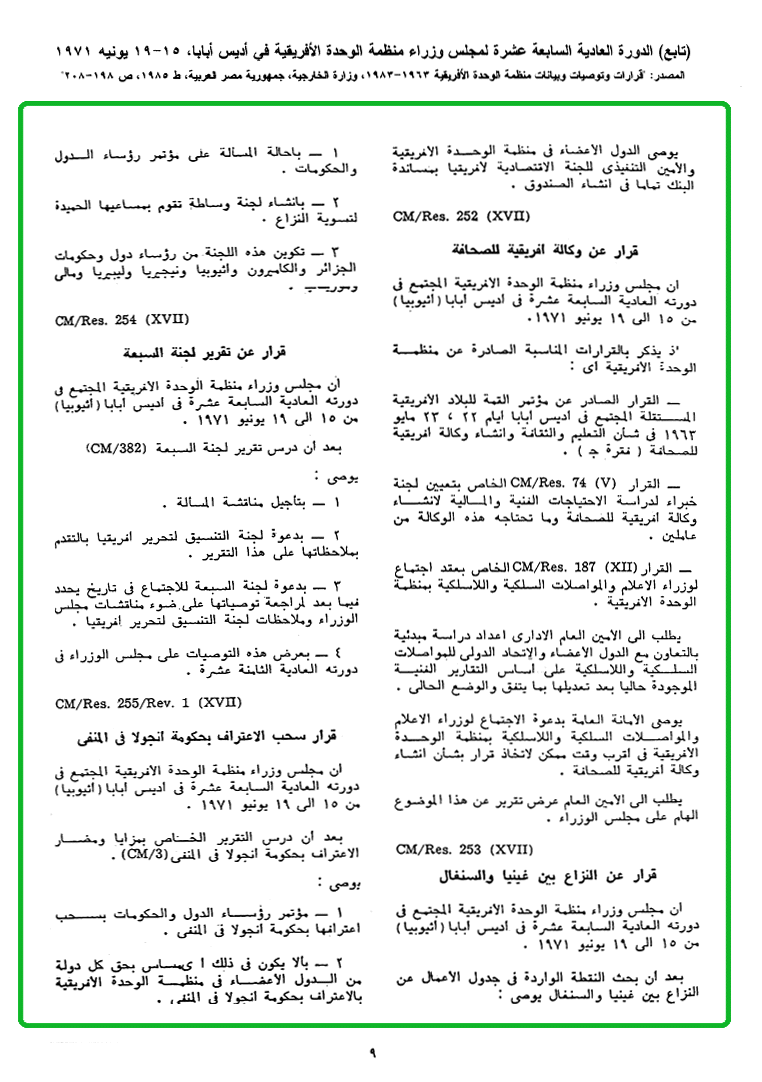 (تابع) الدورة العادية السابعة عشرة لمجلس وزراء منظمة الوحدة الأفريقية في أديس أبابا، ١٥-١٩ يونيه ١٩٧١
المصدر: "قرارات وتوصيات وبيانات منظمة الوحدة الأفريقية ١٩٦٣-١٩٨٣، وزارة الخارجية، جمهورية مصر العربية، ط ١٩٨٥، ص ١٩٨-٢٠٨"
يوصى الدول الاعضاء فى منظمة الوحدة الافريقية
والأمين التنفيذى للجنة الاقتصادية لافريقيا بمساندة
البنك تماما فى انشاء الصندوق .
CM/Res. 252 (XVII)
قرار عن وكالة افريقية للصحافة
ان مجلس وزراء منظمة الوحدة الافريقية المجتمع فى
دورته العادية السابعة عشرة فى اديس أبابا (أثيوبيا)
من ١٥ الى ١٩ يونيو ١٩٧١.
اذ يذكر بالقرارات المناسبة الصادرة عن منظمة
الوحدة الافريقية اى :
— القرار الصادر عن مؤتمر القمة للبلاد الافريقية
المستقلة المجتمع فى اديس أبابا ايام ٢٢ ، ٢٣ مايو
١٩٦٣ فى شأن التعليم والثقافة وانشاء وكالة افريقية
للصحافة ( فقرة ج ) .
— القرار CM/Res. 74 (V) الخاص بتعيين لجنة
خبراء لدراسة الاحتياجات الفنية والمالية لانشاء
وكالة افريقية للصحافة وما تحتاجه هذه الوكالة من
عاملين .
— القرار CM/Res. 187 (XII) الخاص بعقد اجتماع
لوزراء الاعلام والمواصلات السلكية واللاسلكية بمنظمة
الوحدة الافريقية .
يطلب الى الامين العام الادارى اعداد دراسة مبدئية
بالتعاون مع الدول الاعضاء والاتحاد الدولى للمواصلات
السلكية واللاسلكية على أساس التقارير الفنية
الموجودة حاليا بعد تعديلها بما يتفق والوضع الحالى .
يوصى الامانة العامة بدعوة الاجتماع لوزراء الاعلام
والمواصلات السلكية واللاسلكية بمنظمة الوحدة
الافريقية فى اقرب وقت ممكن لاتخاذ قرار بشأن انشاء
وكالة افريقية للصحافة .
يطلب الى الامين العام عرض تقرير عن هذا الموضوع
الهام على مجلس الوزراء .
CM/Res. 253 (XVII)
قرار عن النزاع بين غينيا والسنغال
ان مجلس وزراء منظمة الوحدة الافريقية المجتمع فى
دورته العادية السابعة عشرة فى أديس أبابا (أثيوبيا)
من ١٥ الى ١٩ يونيو ١٩٧١ .
بعد أن بحث النقطة الواردة فى جدول الاعمال عن
النزاع بين غينيا والسنغال يوصى :
١ — باحالة المسألة على مؤتمر رؤساء الدول
والحكومات .
٢ — بانشاء لجنة وساطة تقوم بمساعيها الحميدة
لتسوية النزاع .
٣ — تكوين هذه اللجنة من رؤساء دول وحكومات
الجزائر والكاميرون واثيوبيا ونيجيريا وليبيريا ومالى
CM/Res. 254 (XVII)
قرار عن تقرير لجنة السبعة
ان مجلس وزراء منظمة الوحدة الافريقية المجتمع فى
دورته العادية السابعة عشرة فى أديس أبابا (أثيوبيا)
من ١٥ الى ١٩ يونيو ١٩٧١ .
بعد أن درس تقرير لجنة السبعة (CM/382)
يوصى :
١ — بتأجيل مناقشة المسألة .
٢ — بدعوة لجنة التنسيق لتحرير افريقيا بالتقدم
بملاحظاتها على هذا التقرير .
٣ — بدعوة لجنة السبعة للاجتماع فى تاريخ يحدد
فيما بعد لمراجعة توصياتها على ضوء مناقشات مجلس
الوزراء وملاحظات لجنة التنسيق لتحرير افريقيا .
٤ — بعرض هذه التوصيات على مجلس الوزراء فى
دورته العادية الثامنة عشرة .
CM/Res. 255/Rev. 1 (XVII)
قرار سحب الاعتراف بحكومة انجولا فى المنفى
ان مجلس وزراء منظمة الوحدة الافريقية المجتمع فى
دورته العادية السابعة عشرة فى أديس أبابا (أثيوبيا)
من ١٥ الى ١٩ يونيو ١٩٧١ .
بعد أن درس التقرير الخاص بمزايا ومضار
الاعتراف بحكومة انجولا فى المنفى (CM/3) .
يوصى :
١ — مؤتمر رؤساء الدول والحكومات بسحب
اعترافها بحكومة انجولا فى المنفى .
٢ — بألا يكون فى ذلك أى مساس بحق كل دولة
من الدول الأعضاء فى منظمة الوحدة الأفريقية
بالاعتراف بحكومة انجولا فى المنفى .
٩